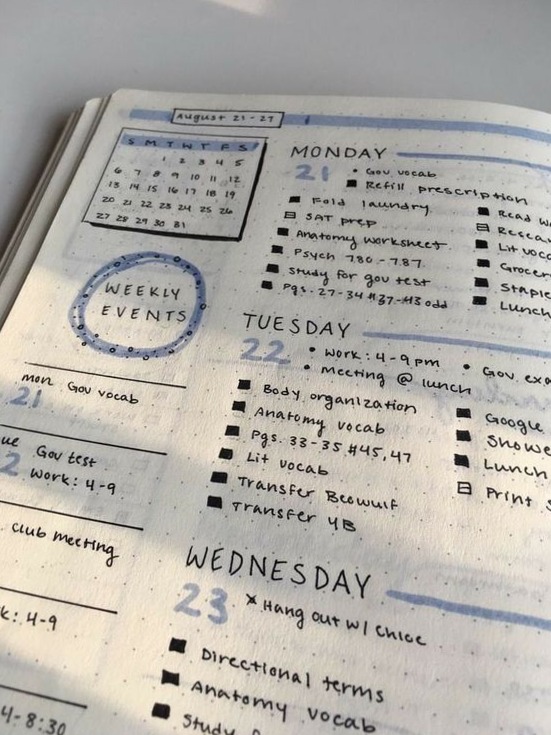 August 21-27
S M T W T F S
1 2 3 4 5
6 7 8 9 10 11 12
13 14 15 16 17 18 19
20 21 22 23 24 25 26
27 28 29 30 31
WEEKLY
EVENTS
mon Gov vocab
21
Gov test
Work: 4-9
club meeting
4-9
4-8:30
MONDAY
21
• Gov vocab
Refill prescription
Fold laundry
SAT prep
Anatomy worksheet
Psych 780-787
Study for gov test
Pgs. 27-34 #37-43 odd
Read
Lit
Lunch
TUESDAY
22
• Work: 4-9pm
• Meeting @ lunch
• Gov
Body organization
Anatomy vocab
Pgs. 33-35 #45,47
Lit vocab
Transfer Beowulf
Transfer 4B
Google
Lunch
Print
WEDNESDAY
23
* Hang out w/ Chloe
Directional terms
Anatomy vocab
Study